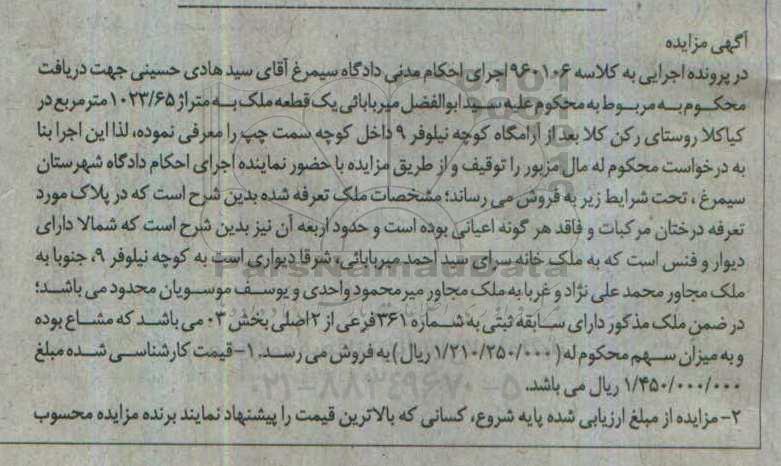 آگهی مزایده
در پرونده اجرایی به کلاسه ۹۶۰۱۰۶ اجرای احکام مدنی دادگاه سیمرغ آقای سید هادی حسینی جهت دریافت
محکوم به مربوط به محکوم علیه سید ابوالفضل میربابائی یک قطعه ملک به متراژ ۱۰۲۳/۶۵ متر مربع در
کیاکلا روستای رکن کلا بعد از آرامگاه کوچه نیلوفر ۹ داخل کوچه سمت چپ را معرفی نموده، لذا این اجرا بنا
به درخواست محکوم له مال مزبور را توقیف و از طریق مزایده با حضور نماینده اجرای احکام دادگاه شهرستان
سیمرغ ، تحت شرایط زیر به فروش می رساند؛ مشخصات ملک تعرفه شده بدین شرح است که در پلاک مورد
تعرفه درختان مرکبات و فاقد هر گونه اعیانی بوده است و حدود اربعه آن نیز بدین شرح است که شمالا دارای
دیوار و فنس است که به ملک خانه سرای سید احمد میربابائی، شرقا دیواری است به کوچه نیلوفر ۹، جنوبا به
ملک مجاور محمد علی نژاد و غربا به ملک مجاور میر محمود واحدی و یوسف موسویان محدود می باشد؛
در ضمن ملک مذکور دارای سابقه ثبتی به شماره ۳۶۱ فرعی از ۲ اصلی بخش ۰۳ می باشد که مشاع بوده
و به میزان سهم محکوم له ( ۱/۲۱۰/۲۵۰/۰۰۰ ریال ) به فروش می رسد. ۱- قیمت کارشناسی شده مبلغ
۱/۴۵۰/۰۰۰/۰۰۰ ریال می باشد.
۲- مزایده از مبلغ ارزیابی شده پایه شروع، کسانی که بالاترین قیمت را پیشنهاد نمایند برنده مزایده محسوب
ParsNamadData
۰۲۱-۸۸۳۴۹۶۷۰-۵